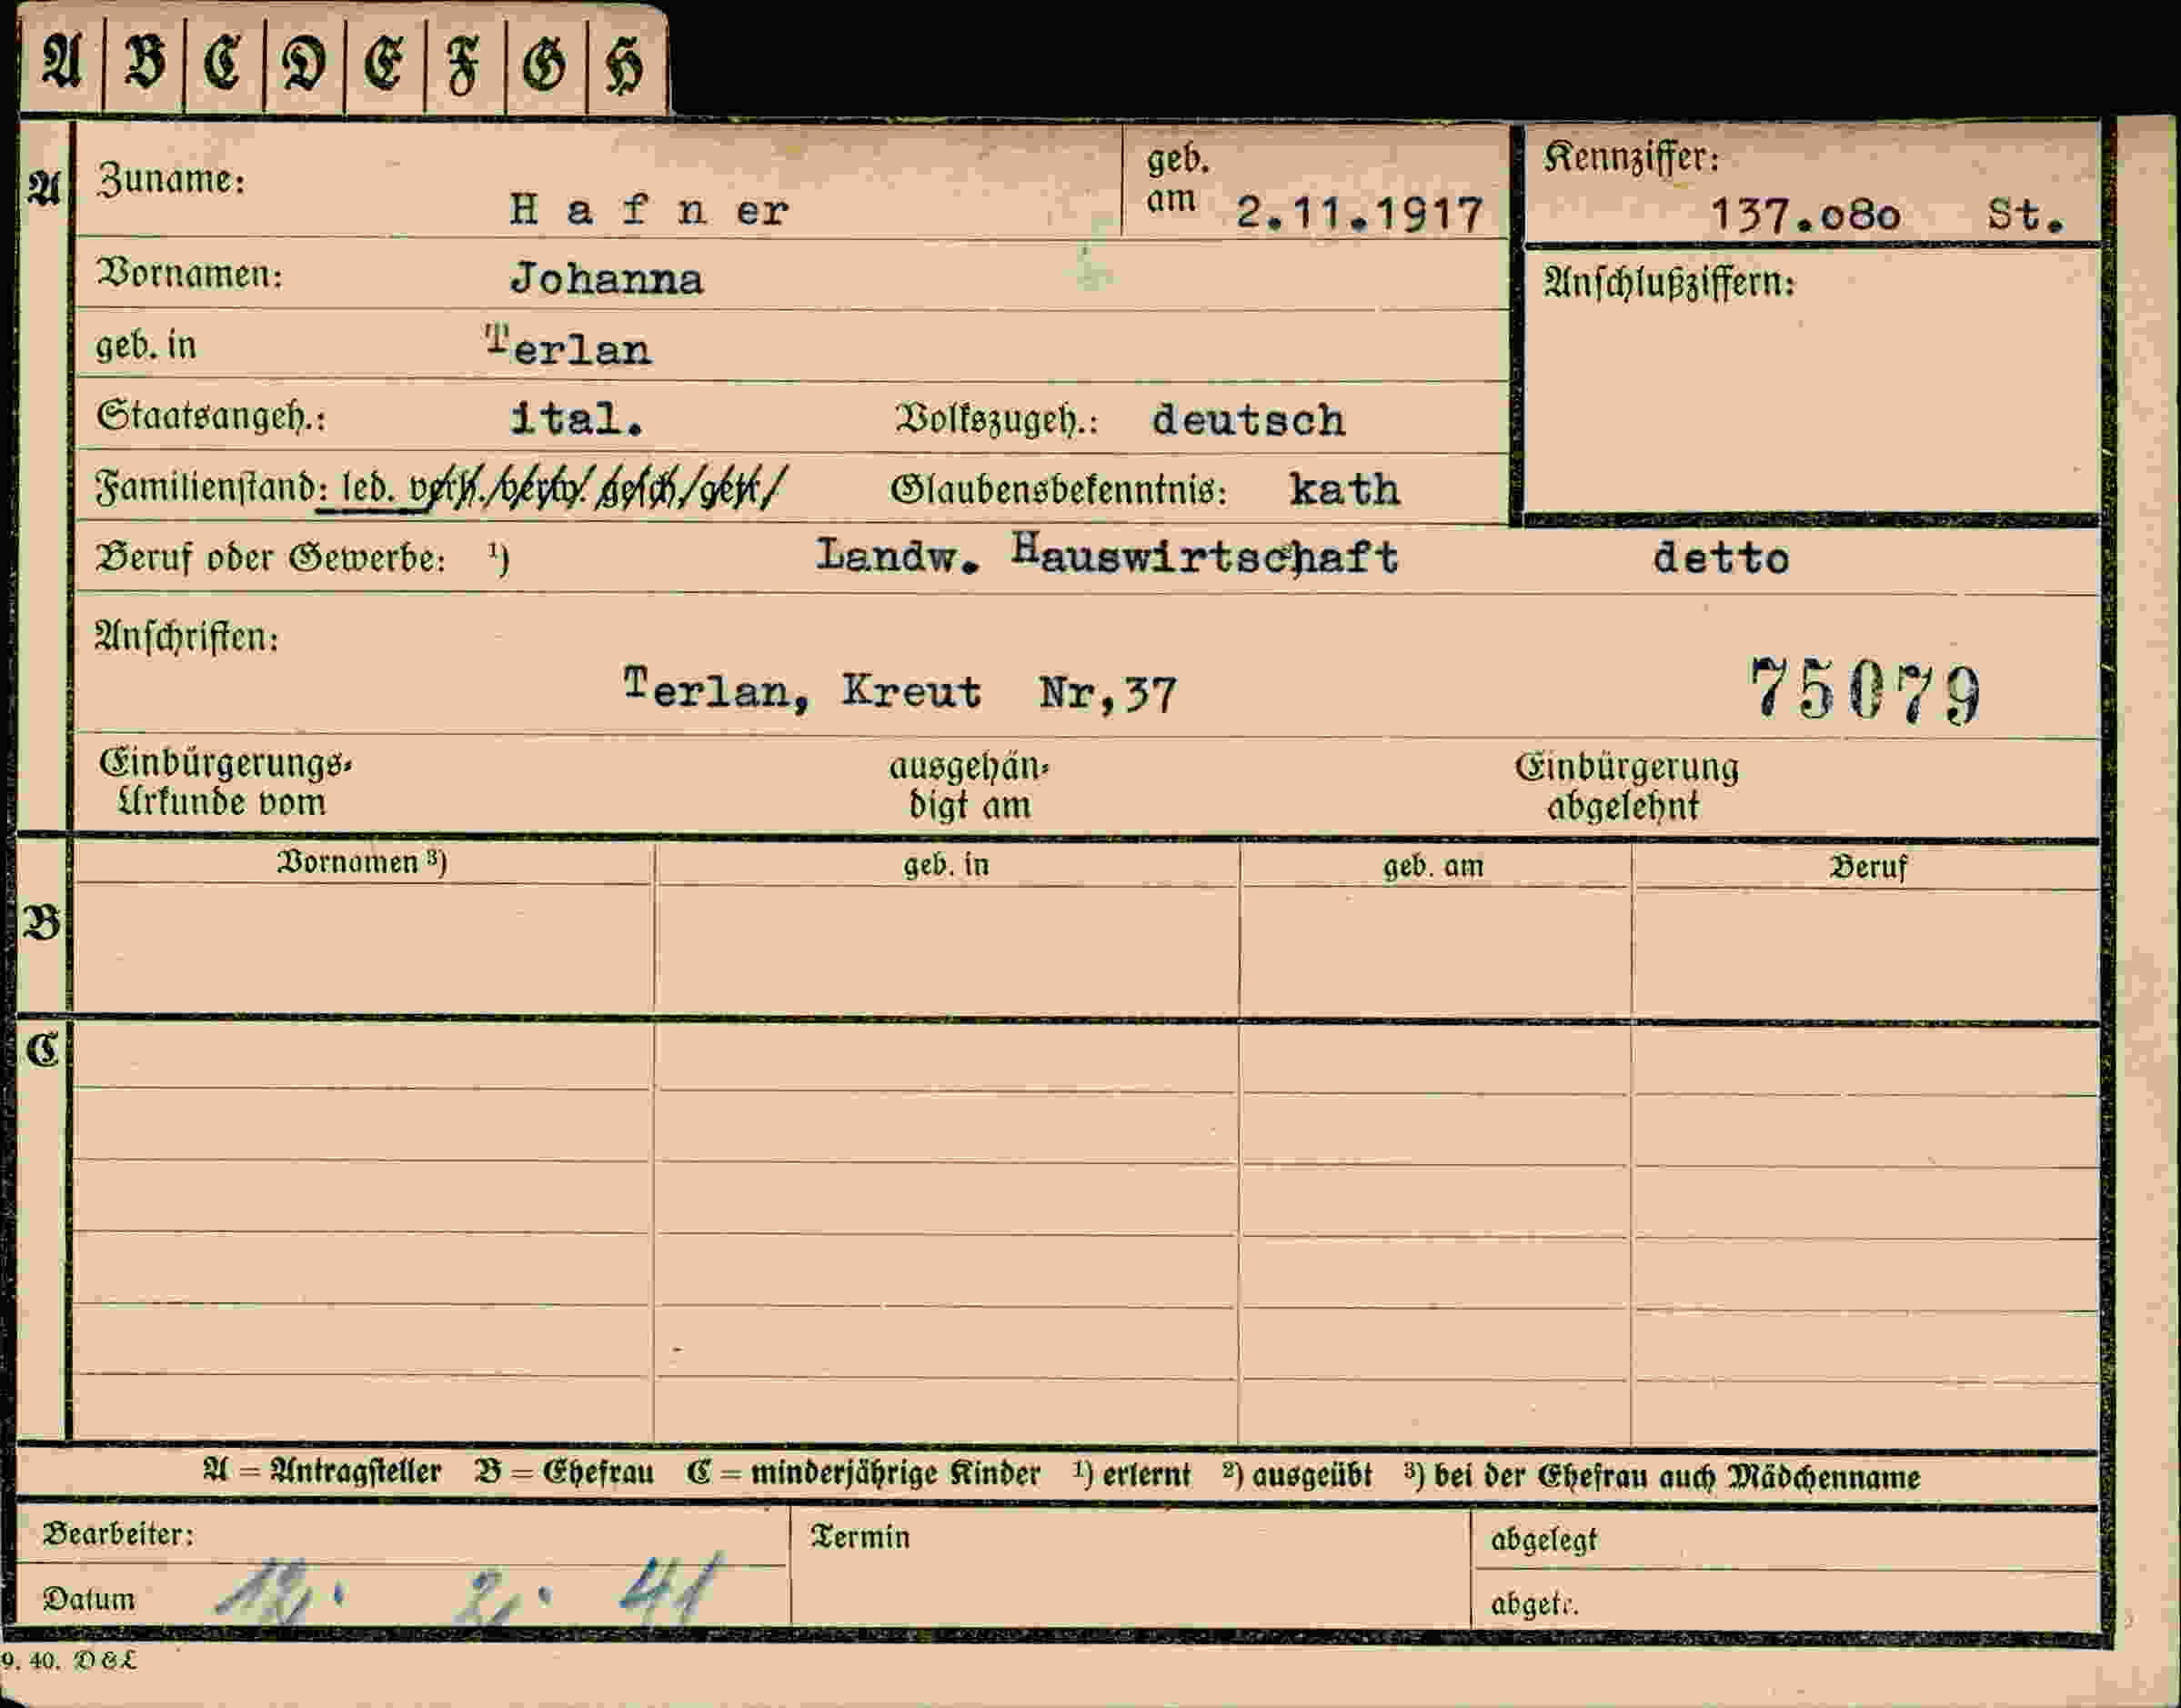 A B C D E F G H
A Zuname: H a f n er geb. am 2.11.1917 Kennziffer: 137.o8o St.
Vornamen: Johanna Anschlußziffern:
geb. in Terlan
Staatsangeh.: ital. Volkszugeh.: deutsch
Familienstand: led. verh. verw. gesch. getr. Glaubensbekenntnis: kath
Beruf oder Gewerbe: ¹) Landw. Hauswirtschaft detto
Anschriften:
Terlan, Kreut Nr,37 75079
Einbürgerungs- ausgehän- Einbürgerung
Urkunde vom digt am abgelehnt
Vornamen ³) geb. in geb. am Beruf
B
C
A = Antragsteller B = Ehefrau C = minderjährige Kinder ¹) erlernt ²) ausgeübt ³) bei der Ehefrau auch Mädchenname
Bearbeiter: Termin abgelegt
Datum 12. 2. 41 abgetr.
9. 40. D&L